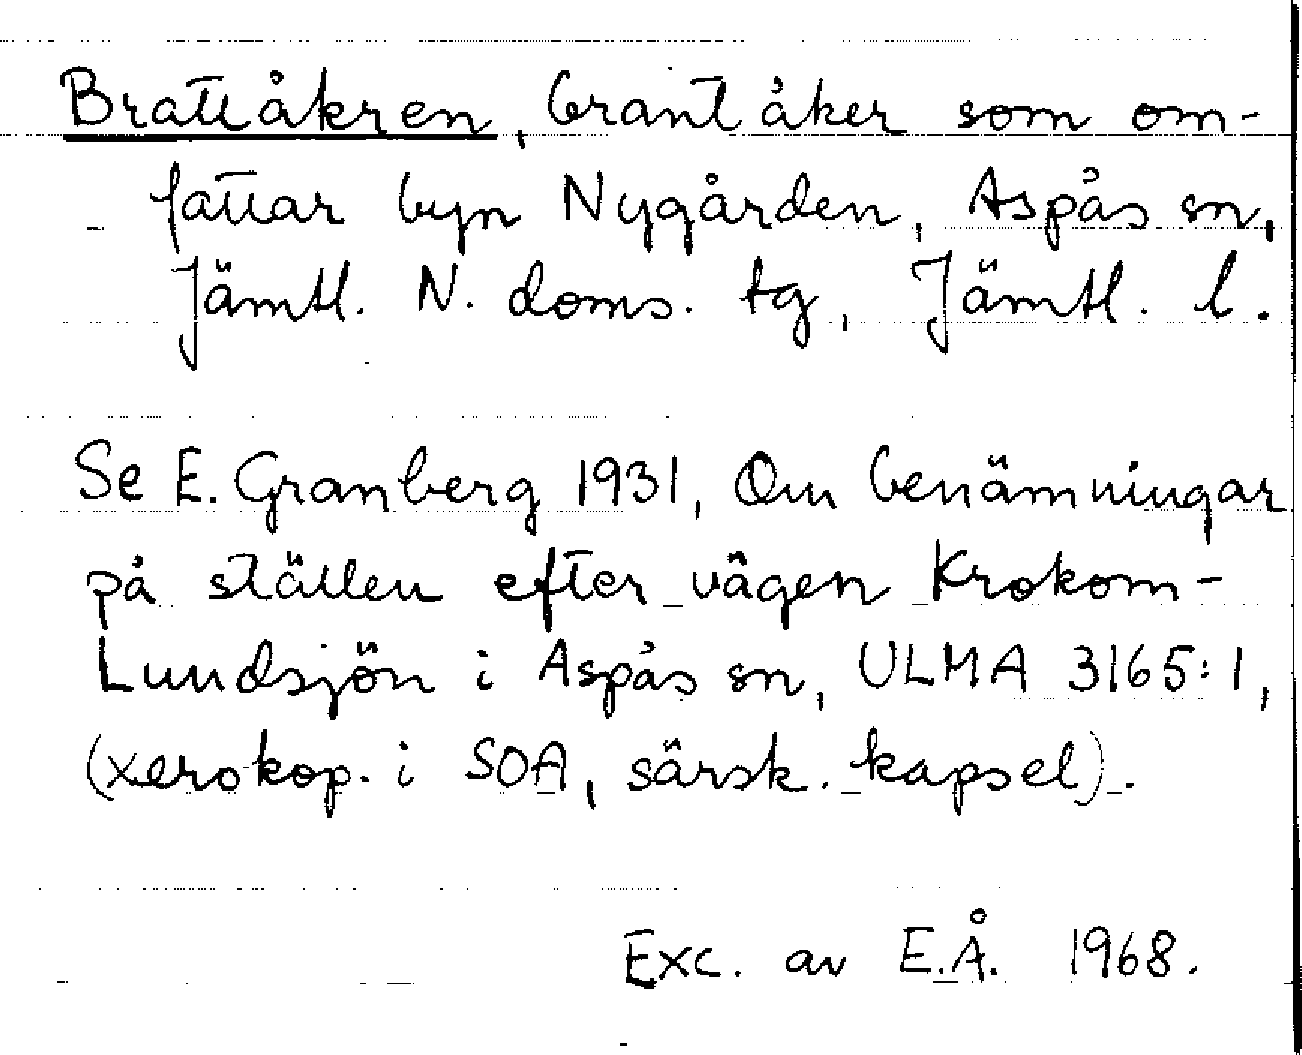 Brattåkren, brant åker som om-
fattar byn Nygården, Aspås sn,
Jämtl. N. doms. tg, Jämtl. l.
Se E. Granberg 1931, Om benämningar
på ställen efter vägen Krokom-
Lundsjön i Aspås sn, ULMA 3165:1,
(xerokop. i SOA, särsk. kapsel).
Exc. av E.Å. 1968.